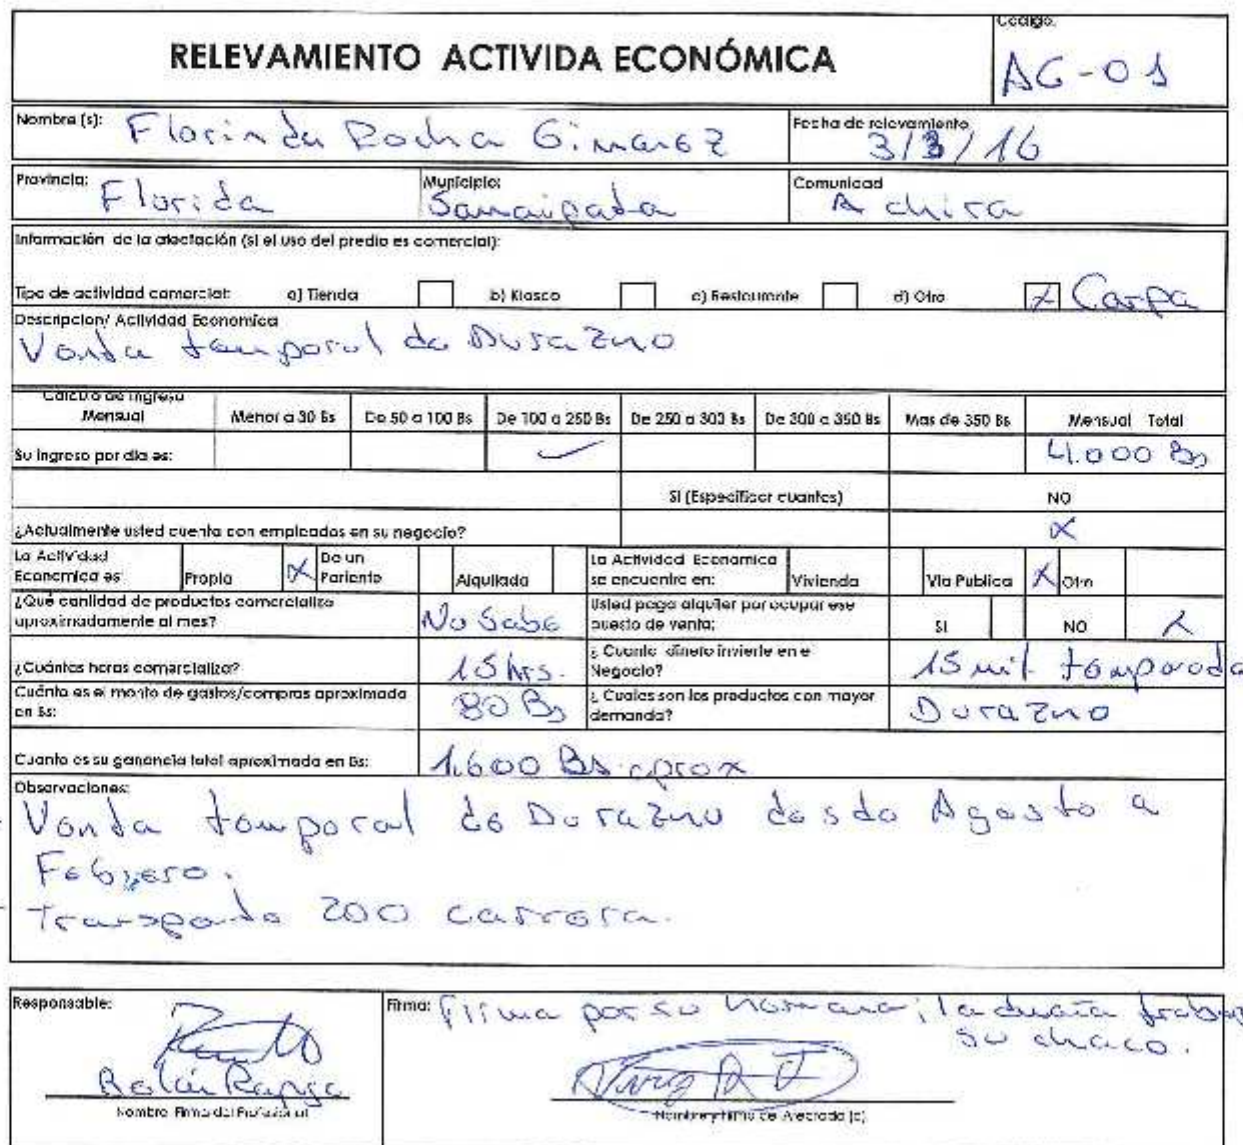 Código:
RELEVAMIENTO ACTIVIDA ECONÓMICA
AG-01
Nombre (s): Florinda Rocha Gimenez
Fecha de relevamiento 3/3/16
Provincia: Florida
Municipio: Samaipata
Comunidad Achira
Información de la afectación (si el uso del predio es comercial):
Tipo de actividad comercial: a) Tienda b) Kiosco c) Restaurante d) Otro X Carpa
Descripcion/ Actividad Economica
Venta temporal de Durazno
Calculo de ingreso Mensual
Menor a 30 Bs De 50 a 100 Bs De 100 a 250 Bs De 250 a 300 Bs De 300 a 350 Bs Mas de 350 Bs Mensual Total
Su ingreso por dia es: ✓ 4.000 Bs
SI (Especificar cuantos) NO
¿Actualmente usted cuenta con empleados en su negocio? X
La Actividad Economica es: Propia X De un Pariente Alquilada
La Actividad Economica se encuentra en: Vivienda Via Publica X Otro
¿Qué cantidad de productos comercializa aproximadamente al mes? No Sabe
Usted paga alquiler por ocupar ese puesto de venta: SI NO X
¿Cuántas horas comercializa? 15 hrs.
¿Cuanto dinero invierte en el Negocio? 15 mil temporada
Cuánto es el monto de gastos/compras aproximada en Bs: 80 Bs
¿Cuales son los productos con mayor demanda? Durazno
Cuanto es su ganancia total aproximada en Bs: 1.600 Bs aprox
Observaciones:
Venta temporal de Durazno desde Agosto a
Febrero.
Transporte 200 carrera.
Responsable:
Nombre Firma del Profesional
Firma: Firma por su hermana; la dueña trabaja
su chaco.
Nombre y Firma de Afectado (a)